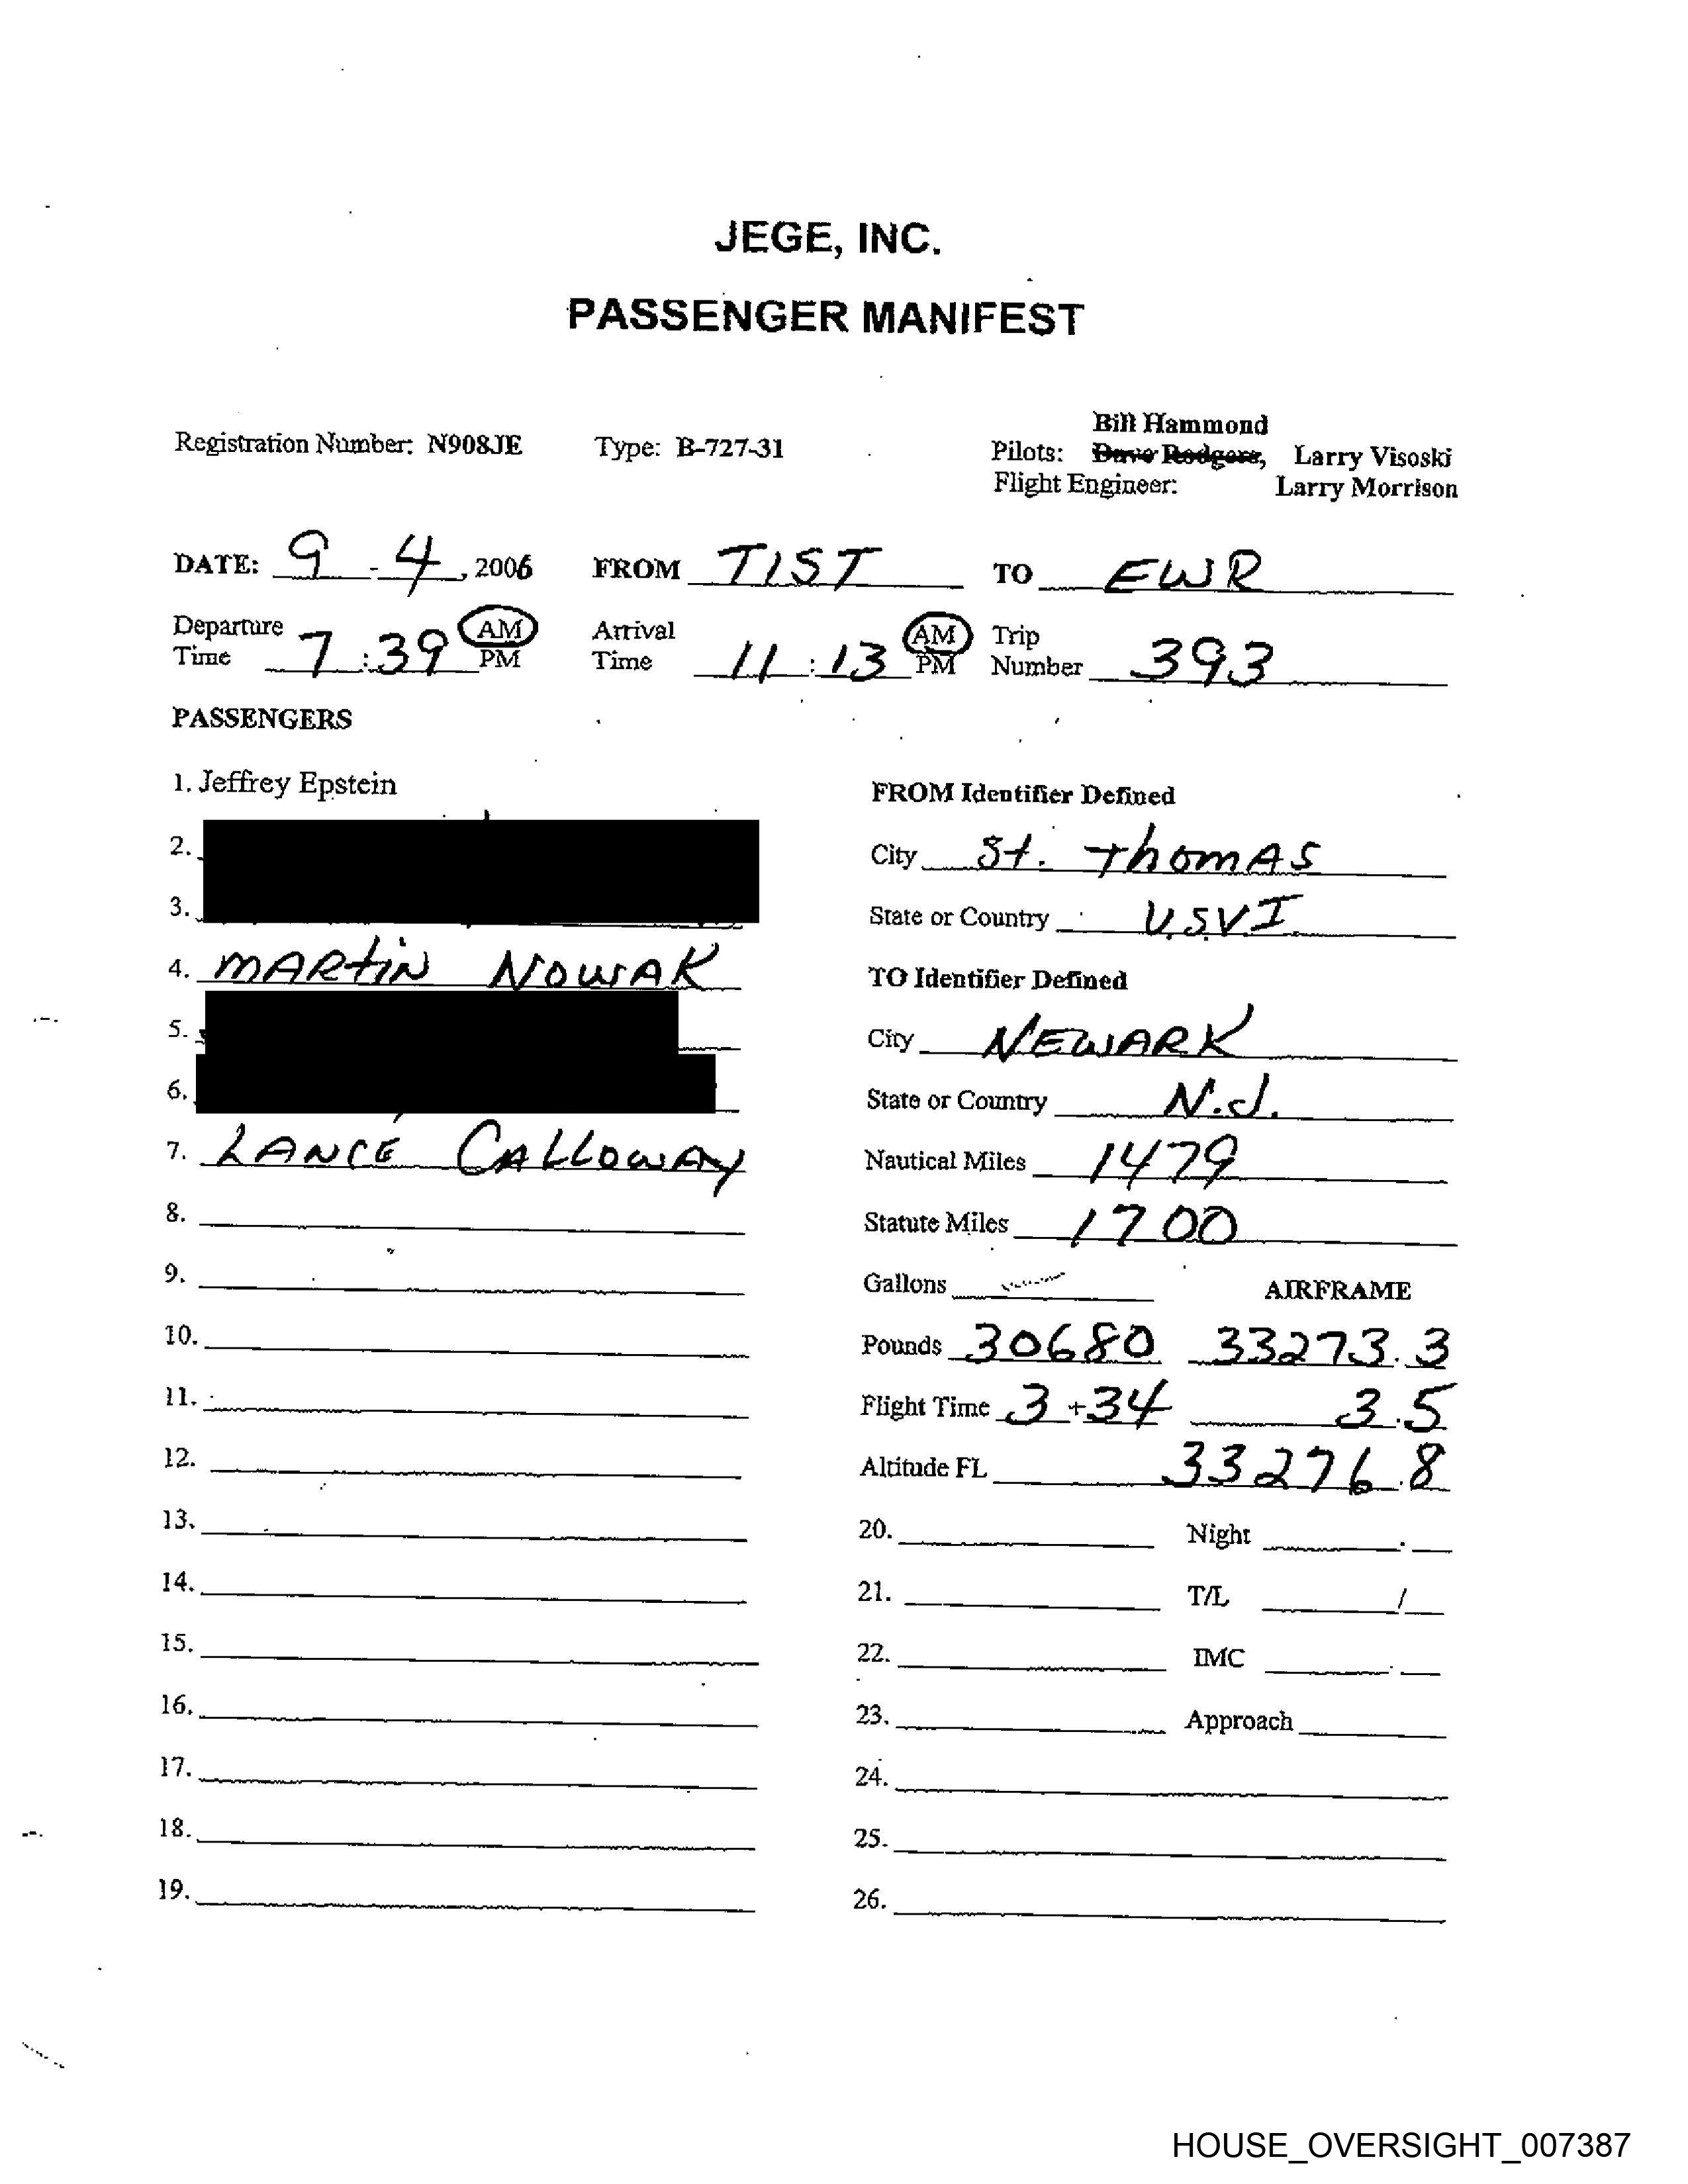 JEGE, INC.
PASSENGER MANIFEST
Bill Hammond
Registration Number: N908JE Type: B-727-31 Pilots: Dave Rodgers, Larry Visoski
Flight Engineer: Larry Morrison
DATE: 9 - 4, 2006 FROM TIST TO EWR
Departure Time 7:39 AM PM Arrival Time 11:13 AM PM Trip Number 393
PASSENGERS
1. Jeffrey Epstein
2.
3.
4. MARtiN NOWAK
5.
6.
7. LANCE CALLOWAY
8.
9.
10.
11.
12.
13.
14.
15.
16.
17.
18.
19.
FROM Identifier Defined
City St. ThomAS
State or Country U.S.V.I
TO Identifier Defined
City NEWARK
State or Country N.J.
Nautical Miles 1479
Statute Miles 1700
Gallons AIRFRAME
Pounds 30680 33273.3
Flight Time 3+34 3.5
Altitude FL 33276.8
20. Night .
21. T/L /
22. IMC .
23. Approach
24.
25.
26.
HOUSE_OVERSIGHT_007387